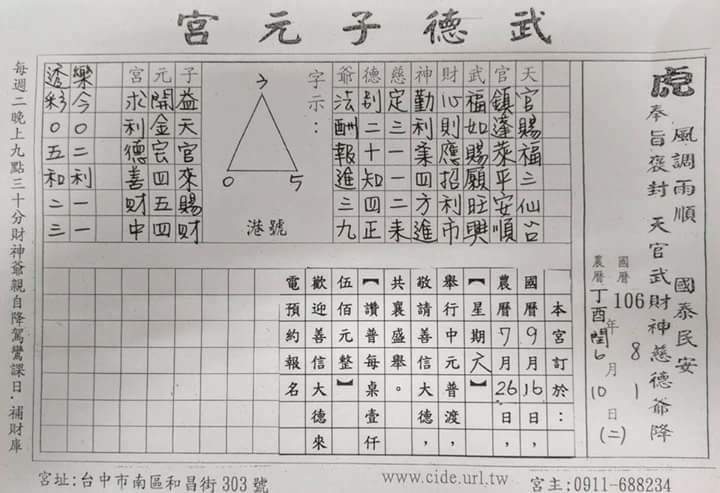 武德子元宮
風調雨順 國泰民安
虎
奉旨褒封 天官武財神慈德爺降
國曆 106 年 8 月 1 日 (二)
農曆 丁酉 閏 6 10
天官賜福三仙台
官鎮蓬萊平安順
武福如賜願旺興
財心則應招利市
神勤利業四方進
慈定三一一二未
德別二十知四正
爺法酬報進三九
字示：
7
0 5
港號
子益天官來賜財
元開金宏四五四
宮求利德善財中
樂今0二利一一
透彩0五和二三
本宮訂於：
國曆9月16日，
農曆7月26日，
【星期六】
舉行中元普渡，
敬請善信大德，
共襄盛舉。
【讚普每桌壹仟
伍佰元整】
歡迎善信大德來
電預約報名
每週二晚上九點三十分財神爺親自降駕鸞課日．補財庫
宮址:台中市南區和昌街303號
www.cide.url.tw
宮主:0911-688234